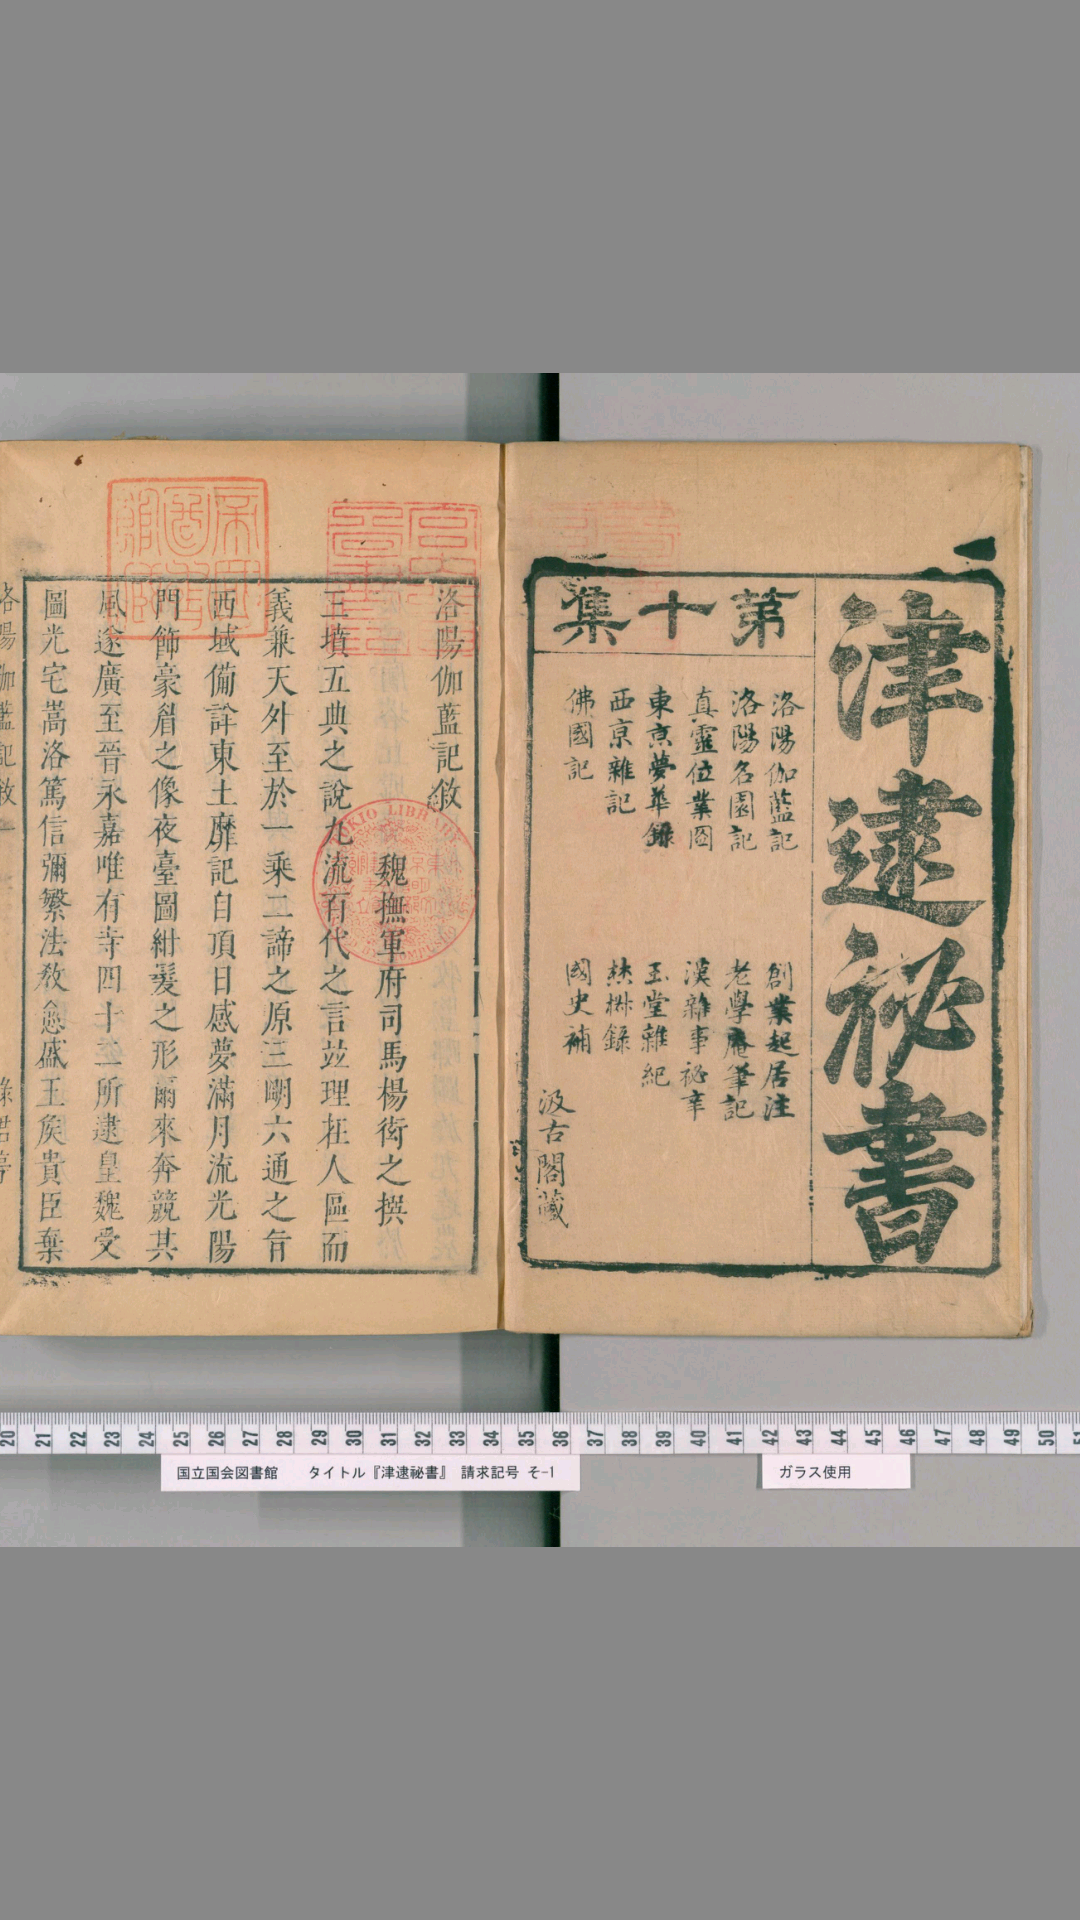 津逮祕書
第十集
洛陽伽藍記
洛陽名園記
真靈位業圖
東京夢華錄
西京雜記
佛國記
創業起居注
老學庵筆記
漢雜事祕辛
玉堂雜紀
國史補
汲古閣藏
洛陽伽藍記敘
魏撫軍府司馬楊衒之撰
三墳五典之說九流百代之言並理在人區而
義兼天外至於一乘二諦之原三明六通之旨
西域備詳東土靡記自頂日感夢滿月流光陽
門飾豪眉之像夜臺圖紺髮之形爾來奔競其
風遂廣至晉永嘉唯有寺四十二所逮皇魏受
圖光宅嵩洛篤信彌繁法教愈盛王矦貴臣棄
洛陽伽藍記敘 一 綠君亭
TOKIO LIBRARY
20 21 22 23 24 25 26 27 28 29 30 31 32 33 34 35 36 37 38 39 40 41 42 43 44 45 46 47 48 49 50 51
国立国会図書館 タイトル『津逮祕書』 請求記号 そ-1
ガラス使用